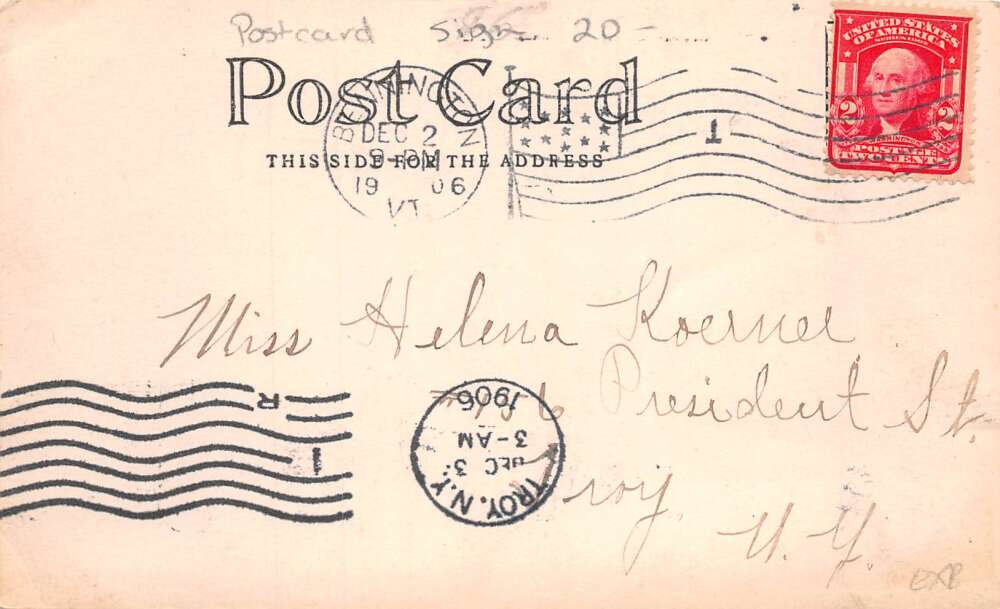 Postcard Sign 20-
Post Card
THIS SIDE FOR THE ADDRESS
BENNINGTON
DEC 2
9-PM
1906
VT
1
UNITED STATES
OF AMERICA
SERIES 1902
2 2
WASHINGTON
POSTAGE
TWO CENTS
Miss Helena Koerner
6 President St.
Troy
N. Y.
R
1
TROY, N.Y.
DEC 3
3-AM
1906